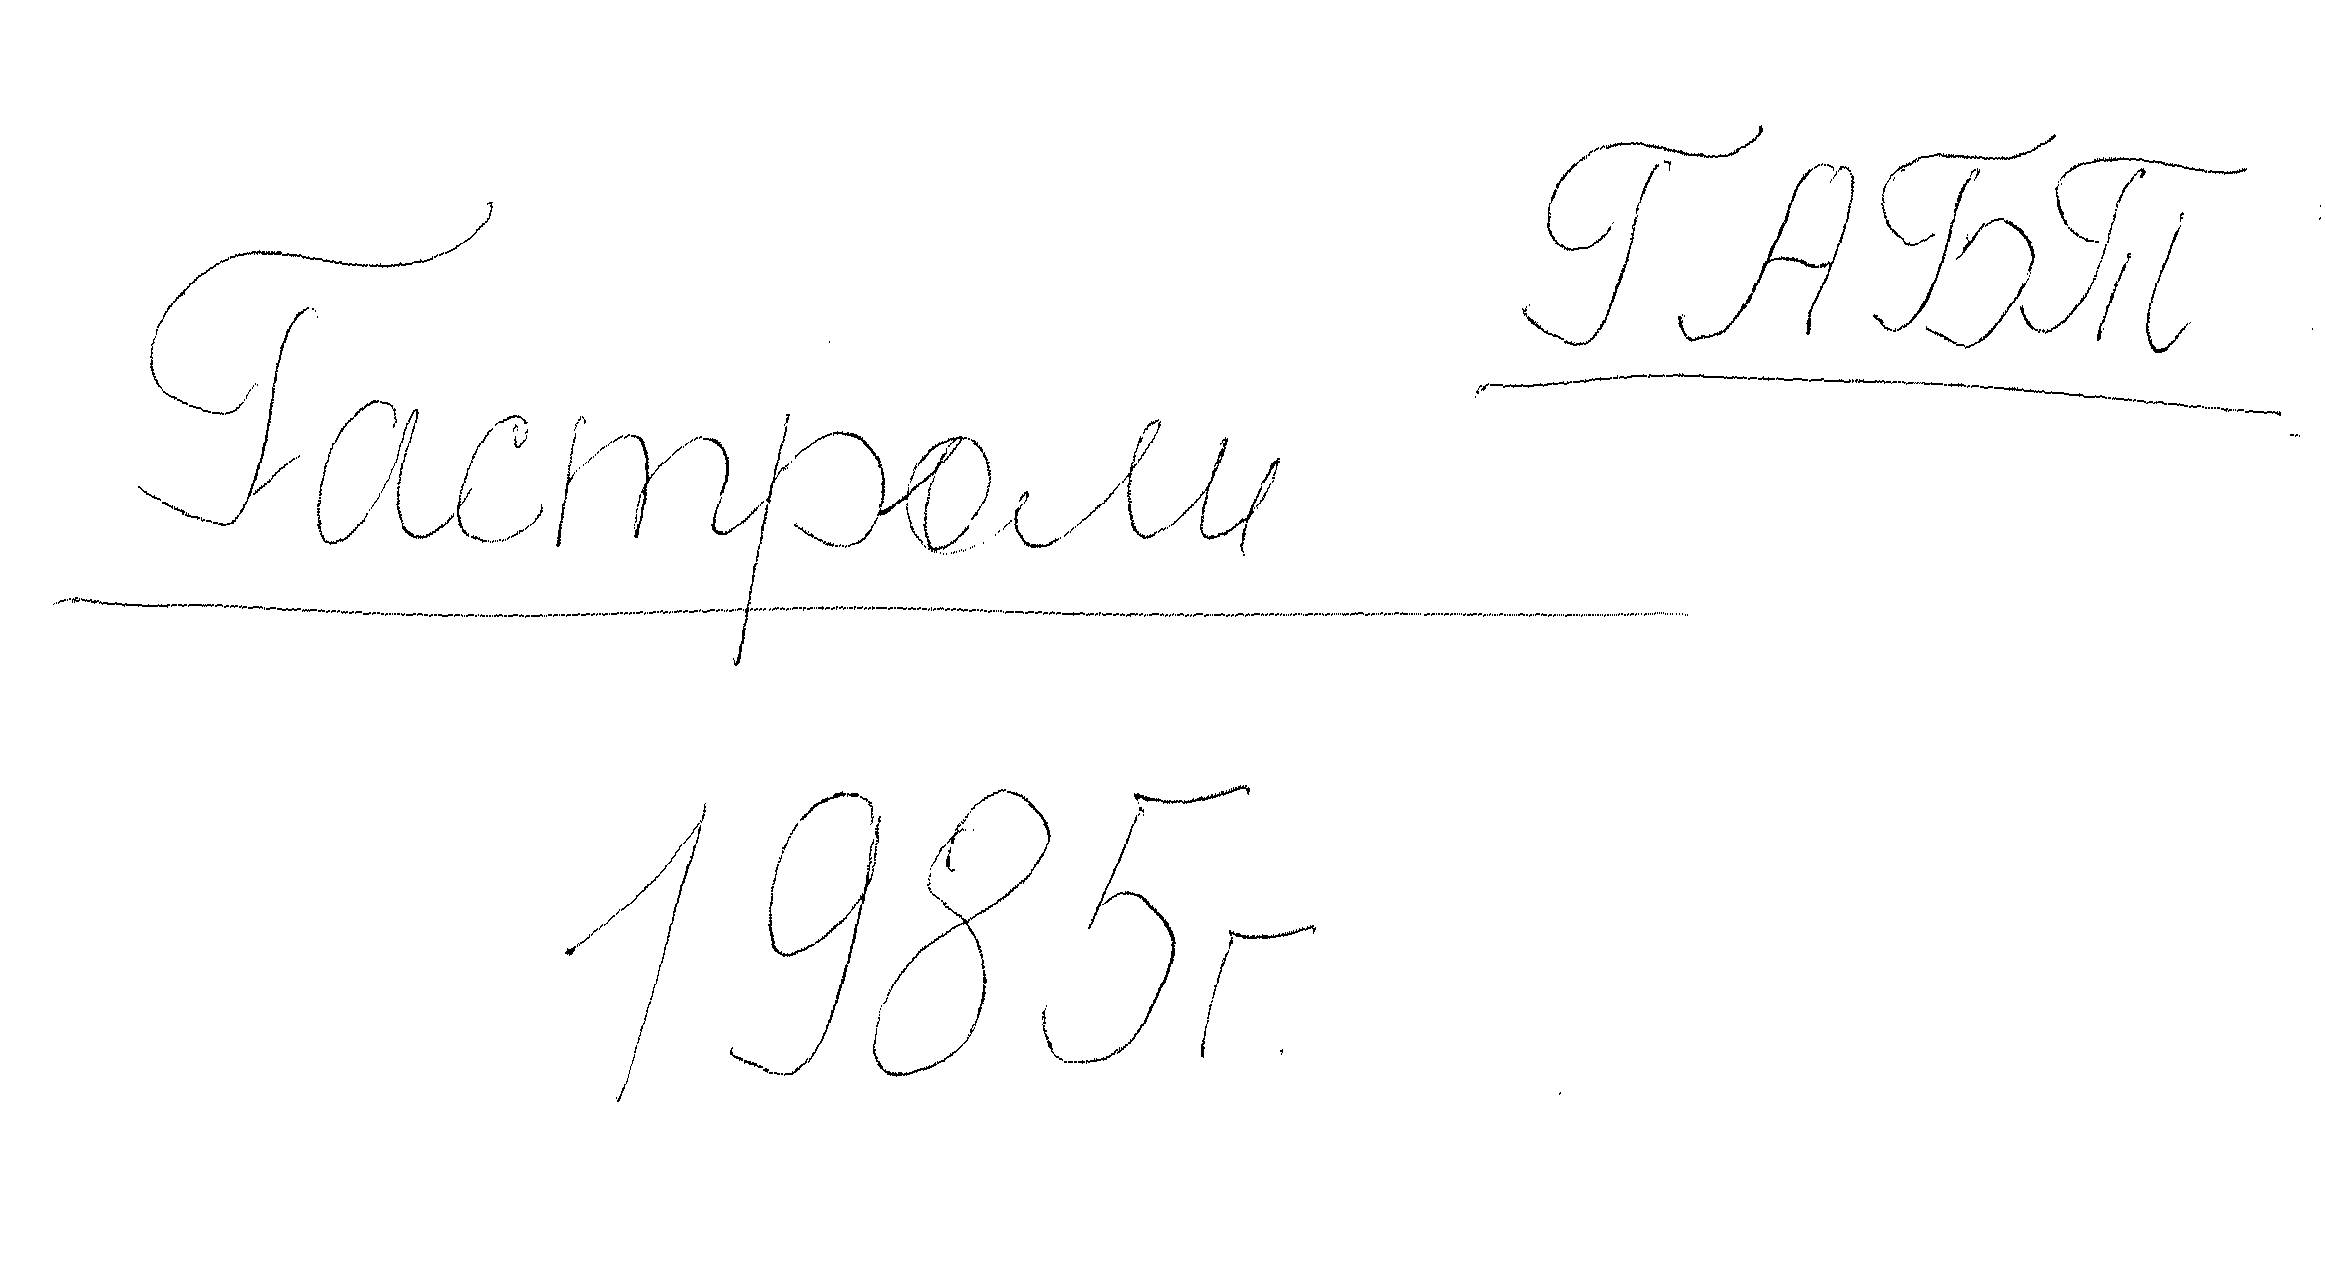 ГАБП
Гастроли
1985г.